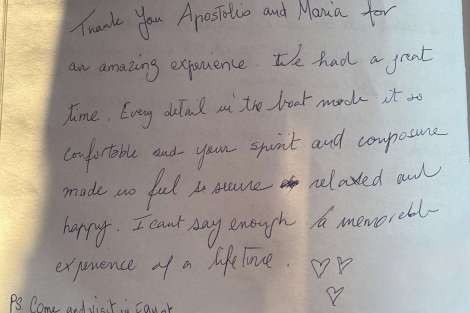 Thank You Apostolis and Maria for
an amazing experience. We had a great
time. Every detail in the boat made it so
confortable and your spirit and composure
made us feel so secure relaxed and
happy. I cant say enough a memorable
experience of a lifetime. ♡♡
♡
PS. Come and visit in Egypt